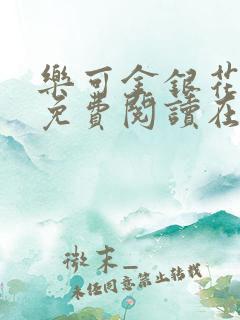 樂可金銀花
免費閱讀在
微末_
未经同意禁止转载